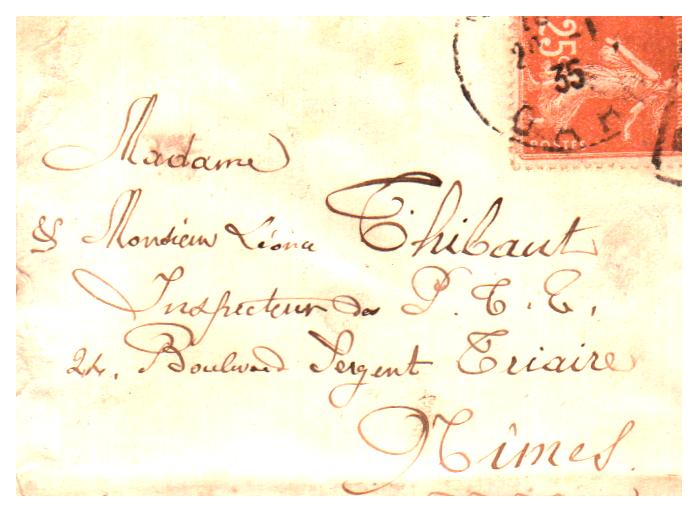 25
35
POSTES
Madame
& Monsieur Léonce Thibaut
Inspecteur des P. T. E.
24, Boulevard Sergent Triaire
Nîmes.